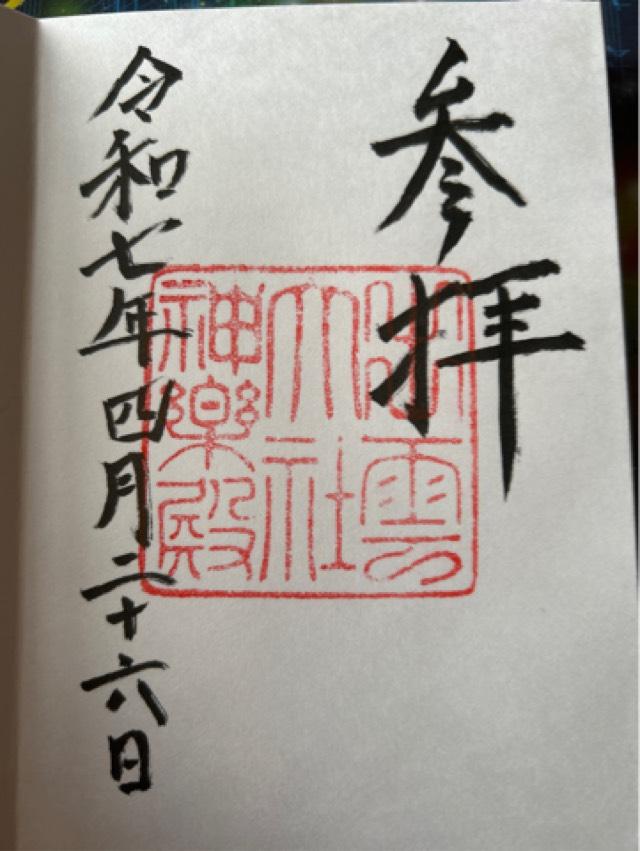 参拝
出雲
大社
神楽殿
令和七年四月二十六日